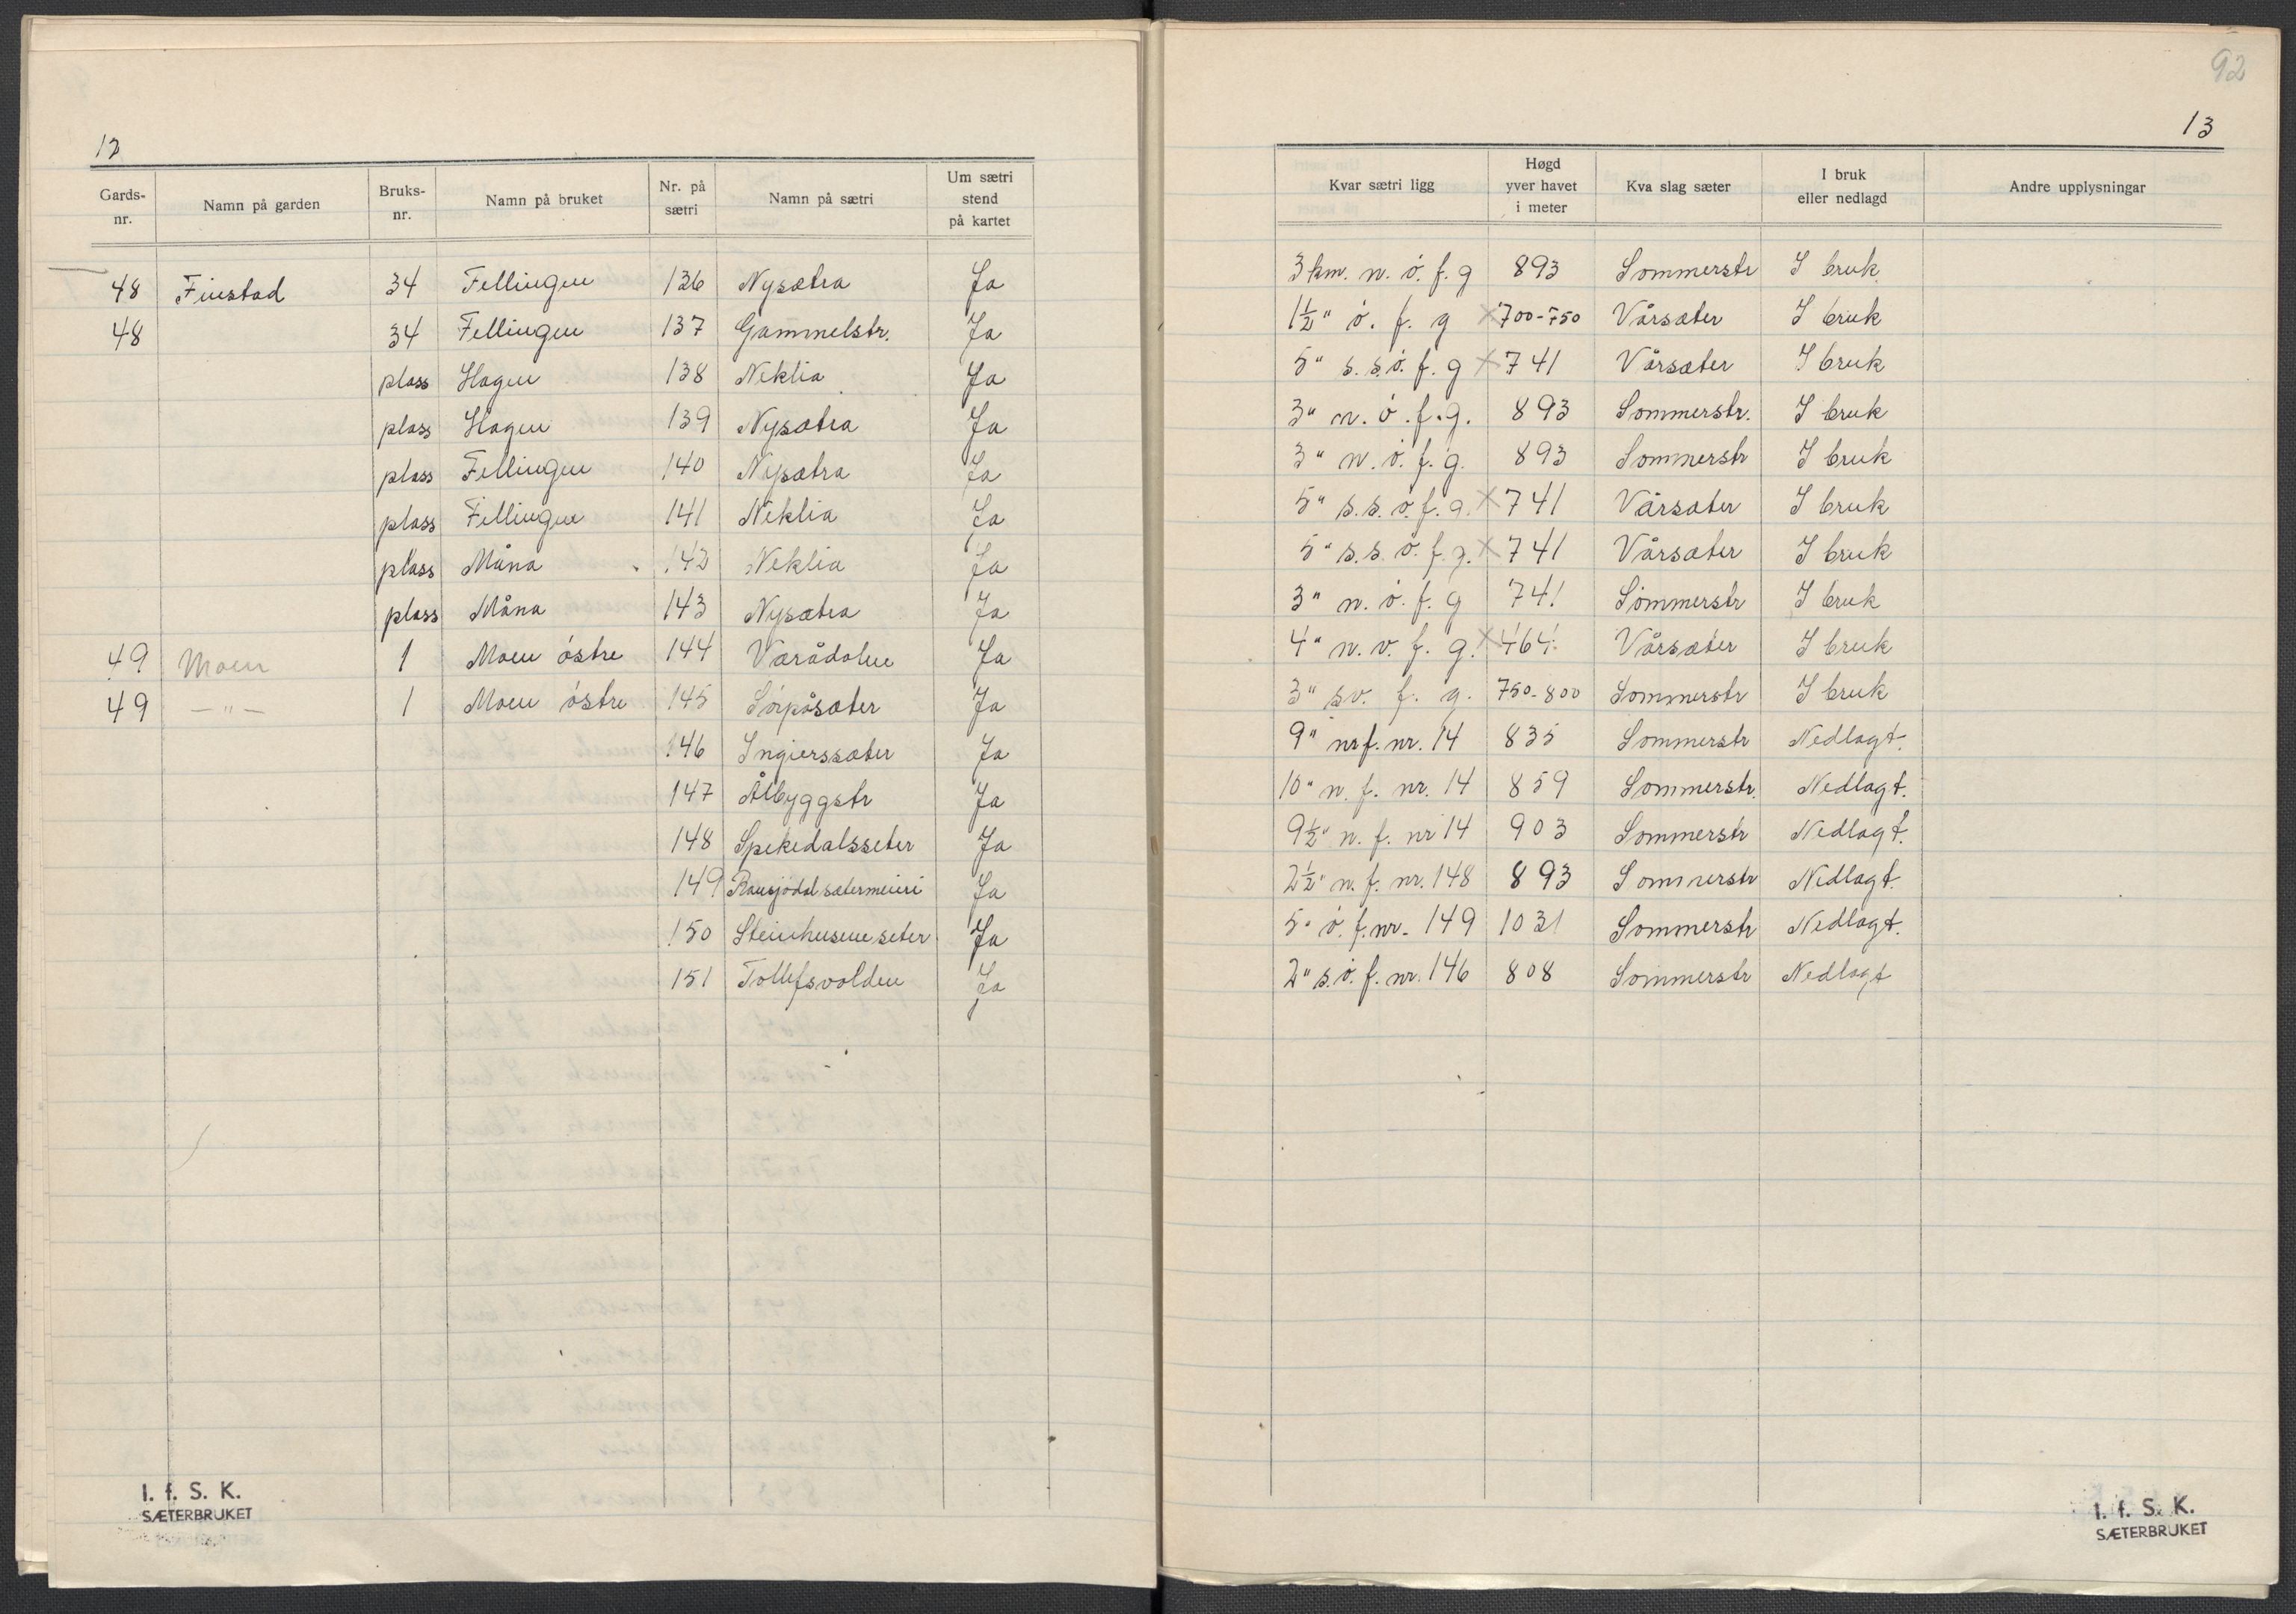 12
Gards-nr. Namn på garden Bruks-nr. Namn på bruket Nr. på sætri Namn på sætri Um sætri stend på kartet
48 Finstad 34 Fellingen 136 Nysætra Ja
48 34 Fellingen 137 Gammelstr. Ja
plass Hagen 138 Neklia Ja
plass Hagen 139 Nysætra Ja
plass Fellingen 140 Nysætra Ja
plass Fellingen 141 Neklia Ja
plass Måna 142 Neklia Ja
plass Måna 143 Nysætra Ja
49 Moen 1 Moen östre 144 Værådalen Ja
49 —"— 1 Moen östre 145 Sörpåsæter Ja
146 Ingjerssæter Ja
147 Ålbyggstr Ja
148 Spekedalsseter Ja
149 Rausjödal sætermeieri Ja
150 Steinhusene seter Ja
151 Tollefsvolden Ja
I. f. S. K.
SÆTERBRUKET
92
13
Kvar sætri ligg Høgd yver havet i meter Kva slag sæter I bruk eller nedlagd Andre upplysningar
3 km. n. ö. f. g 893 Sommerstr I bruk
1½ " ö. f. g x 700-750 Vårsæter I bruk
5 " s. s. ö. f. g x 741 Vårsæter I bruk
3 " n. ö. f. g. 893 Sommerstr. I bruk
3 " n. ö. f. g. 893 Sommerstr I bruk
5 " s. s. ö. f. g. x 741 Vårsæter I bruk
5 " s. s. ö. f. g. x 741 Vårsæter I bruk
3 " n. ö. f. g 741 Sommerstr I bruk
4 " n. v. f. g. x 464 Vårsæter I bruk
3 " sv. f. g. 750-800 Sommerstr I bruk
9 " f. nr. 14 835 Sommerstr Nedlagt.
10 " n. f. nr. 14 859 Sommerstr. Nedlagt.
9½ " n. f. nr 14 903 Sommerstr Nedlagt.
2½ " n. f. nr. 148 893 Sommerstr Nedlagt.
5 " ö. f. nr. 149 1031 Sommerstr Nedlagt.
2 " s. ö. f. nr. 146 808 Sommerstr Nedlagt
I. f. S. K.
SÆTERBRUKET